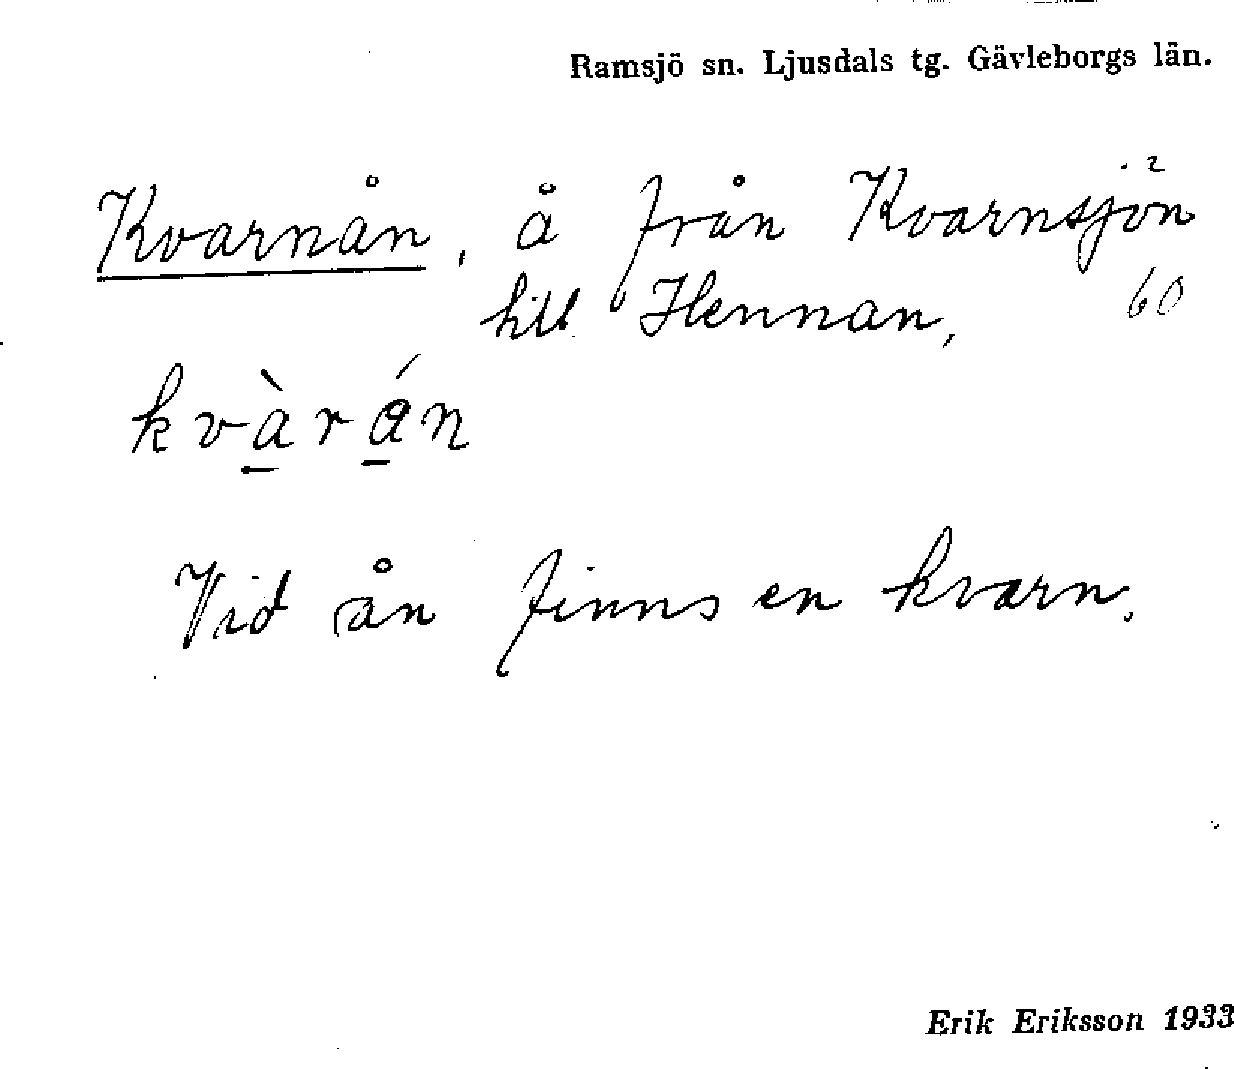 Ramsjö sn. Ljusdals tg. Gävleborgs län.
Kvarnån, å från Kvarnsjön
till Hennan, 60
kvàrán
Vid ån finns en kvarn.
Erik Eriksson 1933